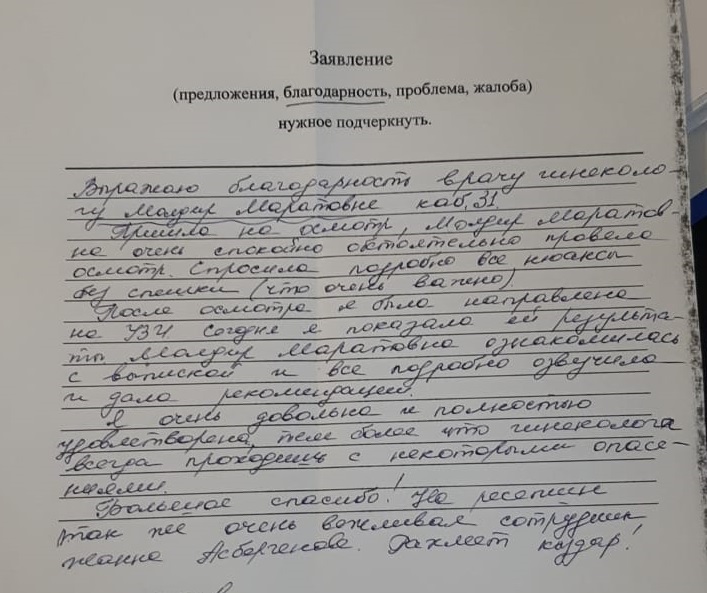 Заявление
(предложения, благодарность, проблема, жалоба)
нужное подчеркнуть.
Выражаю благодарность врачу гинеколо-
гу Молдир Маратовне каб. 31
Пришла на осмотр, Молдир Маратов-
на очень спокойно обстоятельно провела
осмотр. Спросила подробно все нюансы
без спешки (что очень важно)
После осмотра я была направлена
на УЗИ Сегодня я показала ей результа-
ты Молдир Маратовна ознакомилась
с выпиской и все подробно озвучила
и дала рекомендации.
Я очень довольна и полностью
удовлетворена, тем более что гинеколога
всегда проходишь с некоторыми опасе-
ниями.
Большое спасибо! На ресепшн
так же очень вежливая сотрудник
Жанна Асбергенова. Рахмет қыздар!